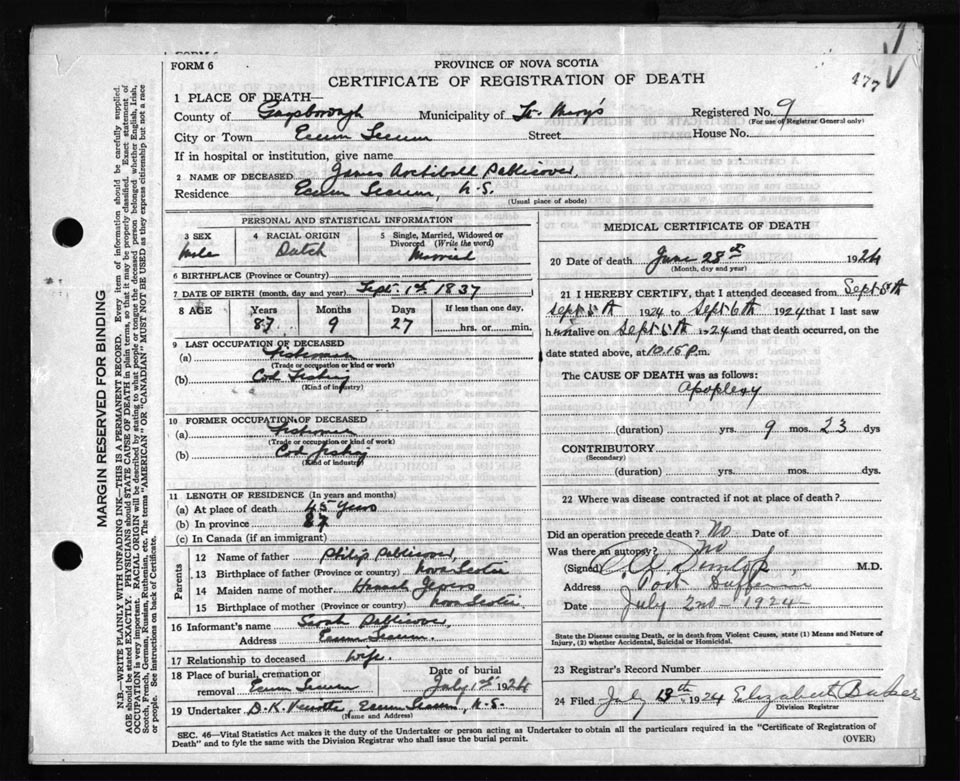 FORM 6
PROVINCE OF NOVA SCOTIA
CERTIFICATE OF REGISTRATION OF DEATH
477
1 PLACE OF DEATH—
County of Guysborough Municipality of St. Mary's Registered No. 9
(For use of Registrar General only)
City or Town Ecum Secum Street House No.
If in hospital or institution, give name
2 NAME OF DECEASED James Archibald Publicover,
Residence Ecum Secum, N.S.
(Usual place of abode)
MARGIN RESERVED FOR BINDING
N.B.—WRITE PLAINLY WITH UNFADING INK—THIS IS A PERMANENT RECORD. Every item of information should be carefully supplied.
AGE should be stated EXACTLY. PHYSICIANS should STATE CAUSE OF DEATH in plain terms, so that it may be properly classified. Exact statement of
OCCUPATION is very important. RACIAL ORIGIN will be described by stating to what people or tongue the deceased person belonged whether English, Irish,
Scotch, French, German, Russian, Ruthenian, etc. The terms "AMERICAN" OR "CANADIAN" MUST NOT BE USED as they express citizenship but not a race
or people. See instructions on back of Certificate.
PERSONAL AND STATISTICAL INFORMATION
3 SEX
Male
4 RACIAL ORIGIN
Dutch
5 Single, Married, Widowed or
Divorced (Write the word)
Married
6 BIRTHPLACE (Province or Country)
7 DATE OF BIRTH (month, day and year) Sept. 1st. 1837
8 AGE Years Months Days If less than one day,
87 9 27 hrs. or min.
9 LAST OCCUPATION OF DECEASED
(a) Fisherman
(Trade or occupation or kind or work)
(b) Cod Fishery
(Kind of industry)
10 FORMER OCCUPATION OF DECEASED
(a) Fisherman
(Trade or occupation or kind of work)
(b) Cod Fishery
(Kind of industry)
11 LENGTH OF RESIDENCE (In years and months)
(a) At place of death 45 Years
(b) In province 87
(c) In Canada (if an immigrant)
Parents
12 Name of father Philip Publicover,
13 Birthplace of father (Province or country) Nova Scotia
14 Maiden name of mother Hannah
15 Birthplace of mother (Province or country) Nova Scotia
16 Informant's name Sarah Publicover,
Address Ecum Secum.
17 Relationship to deceased Wife.
18 Place of burial, cremation or
removal Ecum Secum
Date of burial
July 1st 1924
19 Undertaker D.K. Ecum Secum, N.S.
(Name and Address)
MEDICAL CERTIFICATE OF DEATH
20 Date of death June 28th 1924
(Month, day and year)
21 I HEREBY CERTIFY, that I attended deceased from Sept 5th
Sept 5th 1924 to Sept 6th 1924 that I last saw
him alive on Sept 6th 1924 and that death occurred, on
date stated above, at 10.15 p.m.
The CAUSE OF DEATH was as follows:
Apoplexy
(duration) yrs. 9 mos. 23 dys
CONTRIBUTORY
(Secondary)
(duration) yrs. mos. dys.
22 Where was disease contracted if not at place of death?
Did an operation precede death? No Date of
Was there an autopsy? No
(Signed) Dunlop, M.D.
Address Port Dufferin
Date July 2nd - 1924 -
State the Disease causing Death, or in death from Violent Causes, state (1) Means and Nature of
Injury, (2) whether Accidental, Suicidal or Homicidal.
23 Registrar's Record Number
24 Filed July 18th 1924 Elizabeth Baker
Division Registrar
SEC. 46—Vital Statistics Act makes it the duty of the Undertaker or person acting as Undertaker to obtain all the particulars required in the "Certificate of Registration of
Death" and to fyle the same with the Division Registrar who shall issue the burial permit. (OVER)